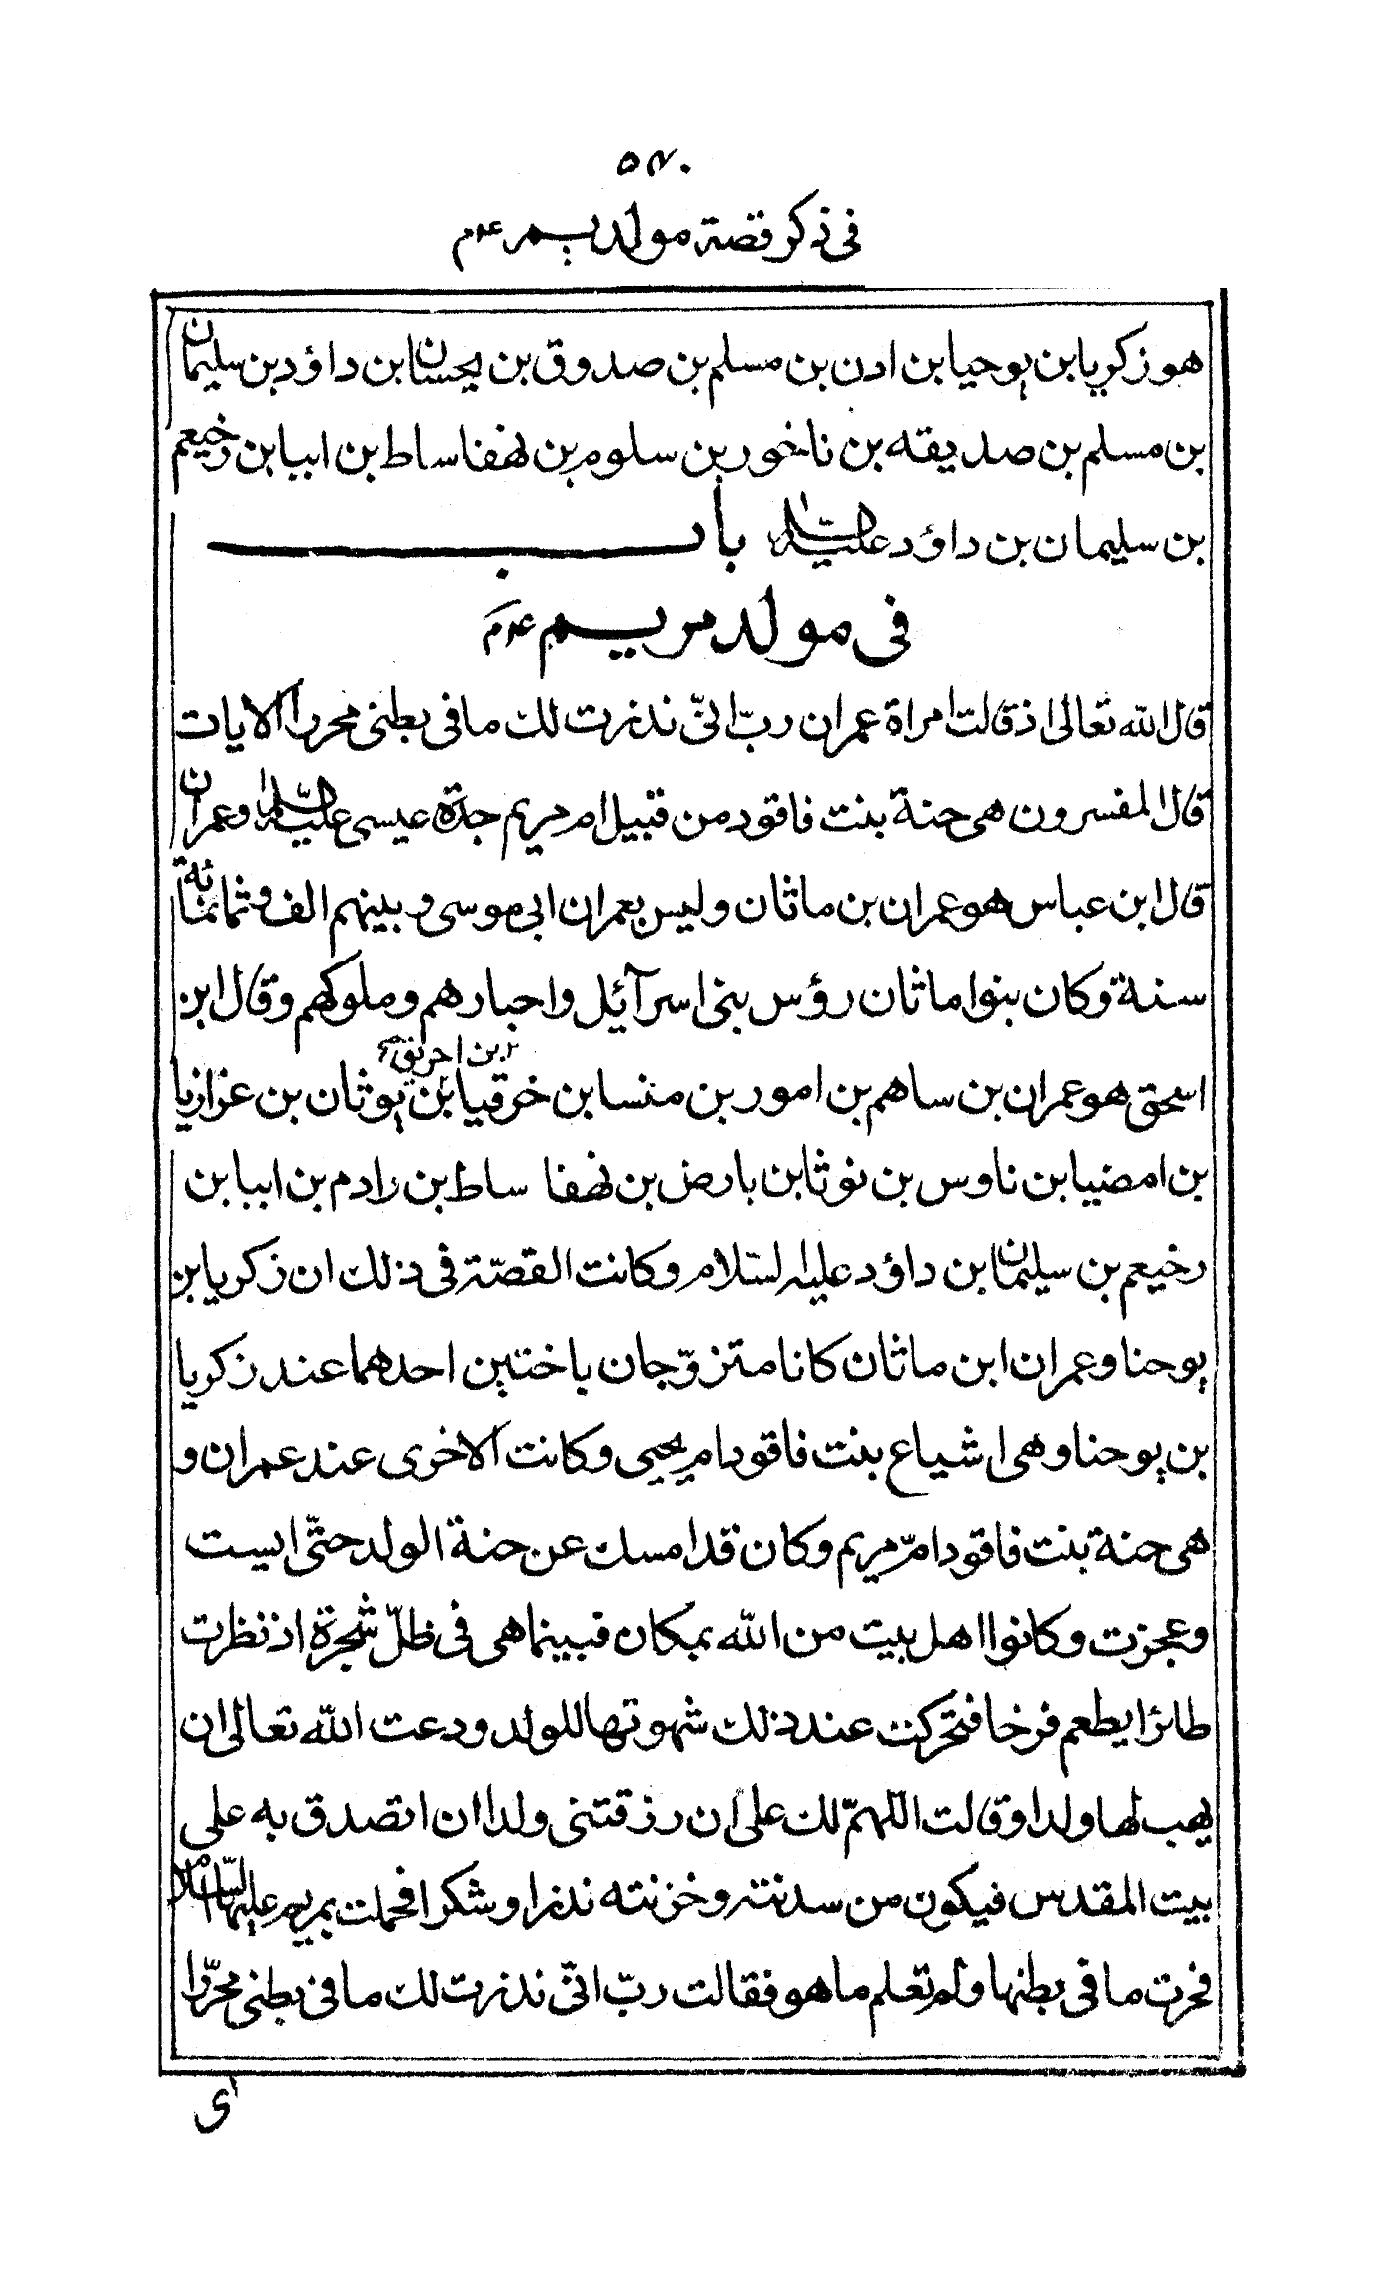 ٥٧٠
في ذكر قصة مولد مريم ع م
هو زكريا بن يوحيا بن ادن بن مسلم بن صدوق بن يحسان ابن داؤد بن سليمان
بن مسلم بن صديقه بن ناخور بن سلوم بن نهفا ساط بن ابيا بن رخيعم
بن سليمان بن داؤد عليه السلام باب
في مولد مريم ع م
قال الله تعالى اذ قالت امراة عمران ربّ انّى نذرت لك ما في بطنى محررا الايات
قال المفسرون هى حنة بنت فاقود من قبيل ام مريم جدّة عيسى عليه السّلام وعمران
قال ابن عباس هو عمران بن ماثان وليس بعمران ابى موسى و بينهم الف وثمانمائة
سنة وكان بنوا ماثان رؤس بنى اسرآئيل واحبارهم وملوكهم وقال ابن
اسحق هو عمران بن ساهم بن امور بن منسا بن خرقيا بن بن احريق يوثان بن عزازيا
بن امضيا بن ناوس بن نوثا بن بارض بن نهفا ساط بن رادم بن ابيا بن
رخيعم بن سليمان ابن داؤد عليه السّلام وكانت القصّة في ذلك ان زكريا بن
يوحنا وعمران ابن ماثان كانا متزوّجان باختين احدهما عند زكريا
بن يوحنا وهى اشياع بنت فاقود ام يحيى وكانت الاخرى عند عمران و
هى حنة بنت فاقود امّ مريم وكان قد امسك عن حنة الولد حتّى ايست
وعجزت وكانوا اهل بيت من الله بمكان فبينما هى في ظلّ شجرة اذ نظرت
طائرا يطعم فرخا فتحركت عند ذلك شهوتها للولد ودعت الله تعالى ان
يهب لها ولدا وقالت اللهمّ لك على ان رزقتنى ولدا ان اتصدق به على
بيت المقدس فيكون من سدنته وخزنته نذرا وشكرا فحملت بمريم عليها السّلام
فحرت ما في بطنها ولم تعلم ما هو فقالت ربّ انّى نذرت لك ما في بطنى محرّرا
اى